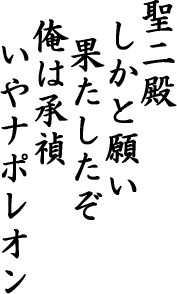 聖二殿
しかと願い
果たしたぞ
俺は承禎
いやナポレオン